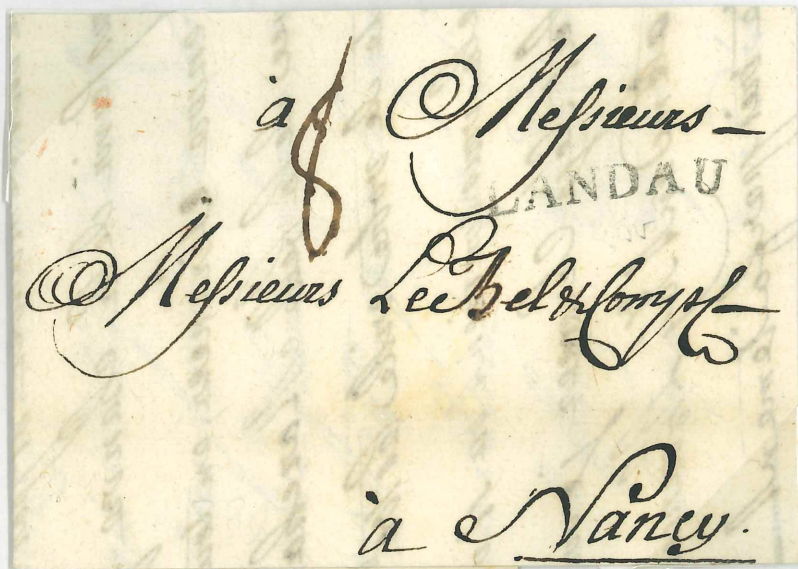 à 8 Messieurs
LANDAU
Messieurs Le Bel & Comp.
à Nancy.